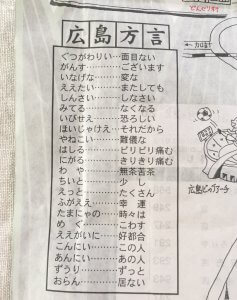 広島方言
ぐつがわりい………面目ない
がんす………ございます
いなげな………変な
えいたい………またしても
しんさい………しなさい
みてる………なくなる
いびせえ………恐ろしい
ほいじゃけえ………それだから
やねこい………難儀な
はしる………ピリピリ痛む
にがる………きりきり痛む
わや………無茶苦茶
ちいと………少し
えっと………たくさん
ふがええ………幸運
たまにゃの………時々は
めぐ………こわす
ええがいに………好都合
こんにい………この人
あんにい………あの人
ずうり………ずっと
おらん………居ない